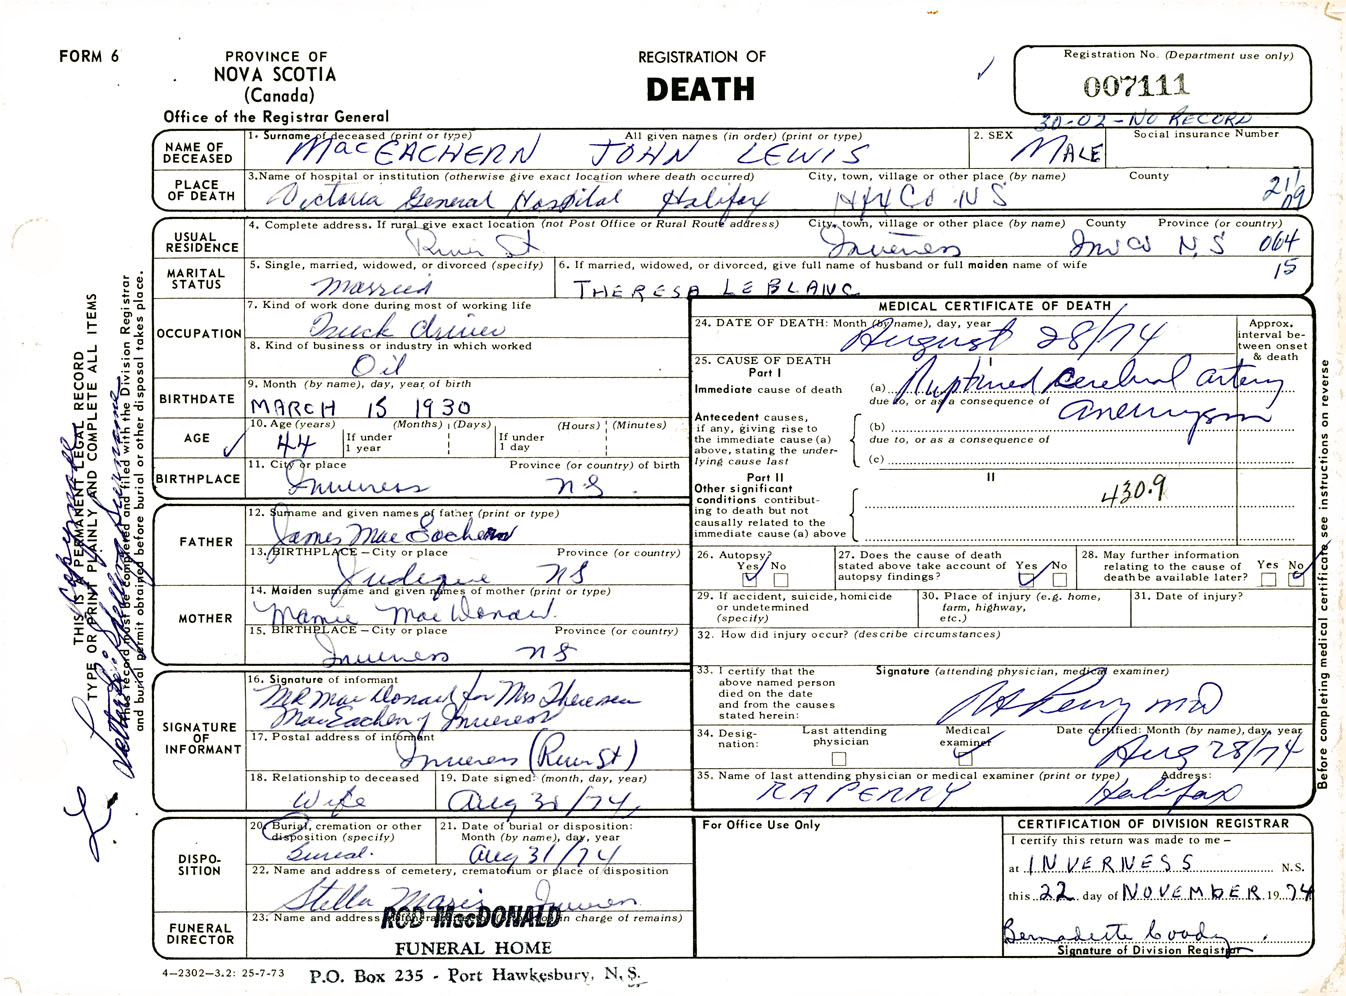 FORM 6
PROVINCE OF
NOVA SCOTIA
(Canada)
Office of the Registrar General
REGISTRATION OF
DEATH
Registration No. (Department use only)
007111
30-02-NO RECORD
NAME OF DECEASED
1. Surname of deceased (print or type) All given names (in order) (print or type)
MacEACHERN JOHN LEWIS
2. SEX
MALE
Social insurance Number
PLACE OF DEATH
3. Name of hospital or institution (otherwise give exact location where death occurred) City, town, village or other place (by name) County
Victoria General Hospital Halifax Hfx Co NS
21/09
USUAL RESIDENCE
4. Complete address. If rural give exact location (not Post Office or Rural Route address) City, town, village or other place (by name) County Province (or country)
River St Inverness Inv Co N.S 064
15
MARITAL STATUS
5. Single, married, widowed, or divorced (specify)
Married
6. If married, widowed, or divorced, give full name of husband or full maiden name of wife
THERESA LEBLANC
OCCUPATION
7. Kind of work done during most of working life
Truck driver
8. Kind of business or industry in which worked
Oil
BIRTHDATE
9. Month (by name), day, year of birth
MARCH 15 1930
AGE
10. Age (years) (Months) (Days) (Hours) (Minutes)
44 If under 1 year If under 1 day
BIRTHPLACE
11. City or place Province (or country) of birth
Inverness NS.
FATHER
12. Surname and given names of father (print or type)
James MacEachern
13. BIRTHPLACE – City or place Province (or country)
Judique NS
MOTHER
14. Maiden surname and given names of mother (print or type)
Mamie MacDonald.
15. BIRTHPLACE – City or place Province (or country)
Inverness NS
SIGNATURE OF INFORMANT
16. Signature of informant
MacDonald for Mrs Theresa
MacEachern of Inverness
17. Postal address of informant
Inverness (River St)
18. Relationship to deceased
Wife
19. Date signed: (month, day, year)
Aug 31/74
DISPO-SITION
20. Burial, cremation or other disposition (specify)
Burial.
21. Date of burial or disposition: Month (by name), day, year
Aug 31/74
22. Name and address of cemetery, crematorium or place of disposition
Stella Maris Inverness
FUNERAL DIRECTOR
23. Name and address of funeral director (or person in charge of remains)
ROD MacDONALD
FUNERAL HOME
P.O. Box 235 - Port Hawkesbury, N.S.
4–2302–3.2: 25-7-73
MEDICAL CERTIFICATE OF DEATH
24. DATE OF DEATH: Month (by name), day, year
August 28/74
Approx. interval between onset & death
25. CAUSE OF DEATH
Part I
I
Immediate cause of death
(a) Ruptured cerebral artery
due to, or as a consequence of
aneurysm
Antecedent causes, if any, giving rise to the immediate cause (a) above, stating the underlying cause last
(b)
due to, or as a consequence of
(c)
Part II
II
Other significant conditions contributing to death but not causally related to the immediate cause (a) above
430.9
26. Autopsy?
Yes No
27. Does the cause of death stated above take account of autopsy findings?
Yes No
28. May further information relating to the cause of death be available later?
Yes No
29. If accident, suicide, homicide or undetermined (specify)
30. Place of injury (e.g. home, farm, highway, etc.)
31. Date of injury?
32. How did injury occur? (describe circumstances)
33. I certify that the above named person died on the date and from the causes stated herein:
Signature (attending physician, medical examiner)
RA Perry MD
34. Designation:
Last attending physician
Medical examiner
Date certified: Month (by name), day, year
Aug 28/74
35. Name of last attending physician or medical examiner (print or type) Address:
RA PERRY Halifax
For Office Use Only
CERTIFICATION OF DIVISION REGISTRAR
I certify this return was made to me –
at INVERNESS N.S.
this 22 day of NOVEMBER 1974
Bernadette Coady
Signature of Division Registrar
THIS IS A PERMANENT LEGAL RECORD
TYPE OR PRINT PLAINLY AND COMPLETE ALL ITEMS
This record must be completed and filed with the Division Registrar
and burial permit obtained before burial or other disposal takes place.
Before completing medical certificate see instructions on reverse